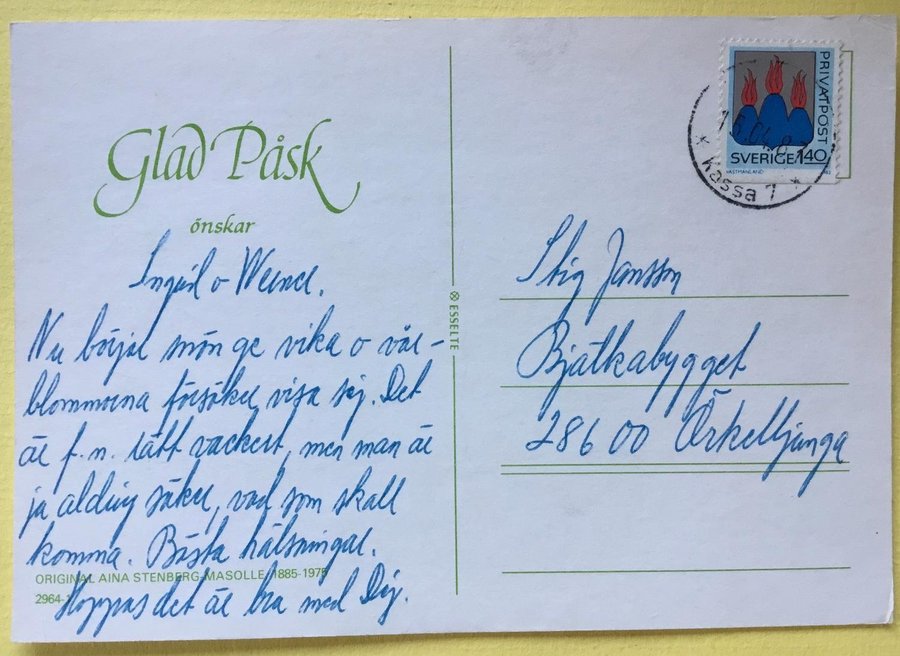 Glad Påsk
önskar
Ingrid o Werner.
Nu börjar snön ge vika o vår-
blommorna försöker visa sig. Det
är f.n. rätt vackert, men man är
ju aldrig säker, vad som skall
komma. Bästa hälsningar.
ORIGINAL AINA STENBERG-MASOLLE 1885-1975
2964-
Hoppas det är bra med Dig.
ESSELTE
PRIVATPOST
SVERIGE 140
VÄSTMANLAND
Kassa 1
Stig Jansson
Bjälkabygget
286 00 Örkelljunga